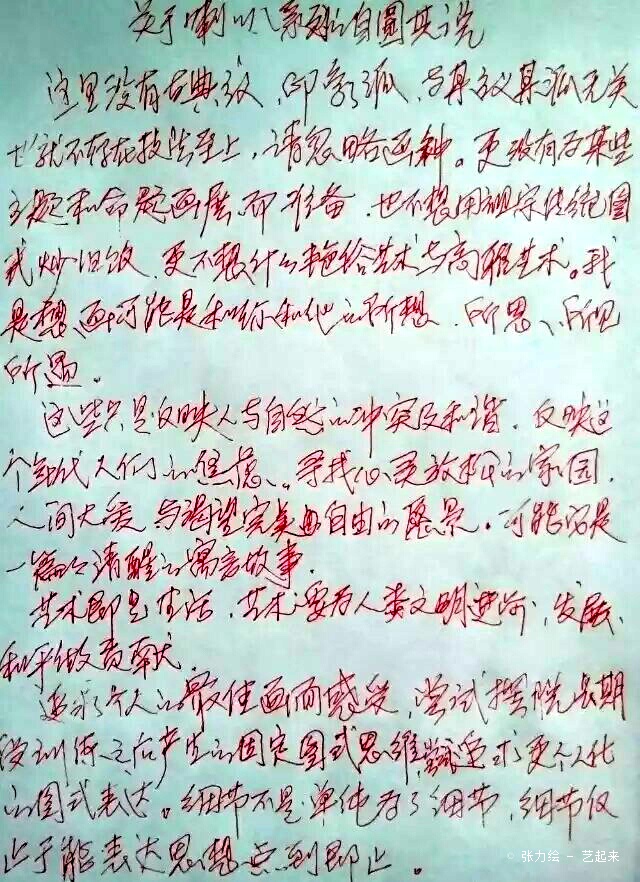 关于喇叭系列的自圆其说
这里没有古典派、印象派、与某主义某派无关
也就不存在技法至上,请忽略画种。更没有为某些
主题和命题画展而准备,也不想用祖宗传统图
式炒旧饭,更不想什么抱给艺术与高雅艺术。我
是想画可能是和你和他的所想、所思、所见
所遇。
这些只是反映人与自然的冲突及和谐,反映这
个时代人们的焦虑、寻找心更放松的家园,
人间大爱与渴望完美自由的愿景。可能只是
一篇个清醒的寓言故事。
艺术即是生活,艺术要为人类文明进步、发展、
和平做贡献。
追求个人的最佳画面感受,尝试摆脱长期
受训练之后产生的固定图式思维,追求更个人化
的图式表达。细节不是单纯为了细节,细节仅
止于能表达思想点到即止。
© 张力绘 - 艺起来